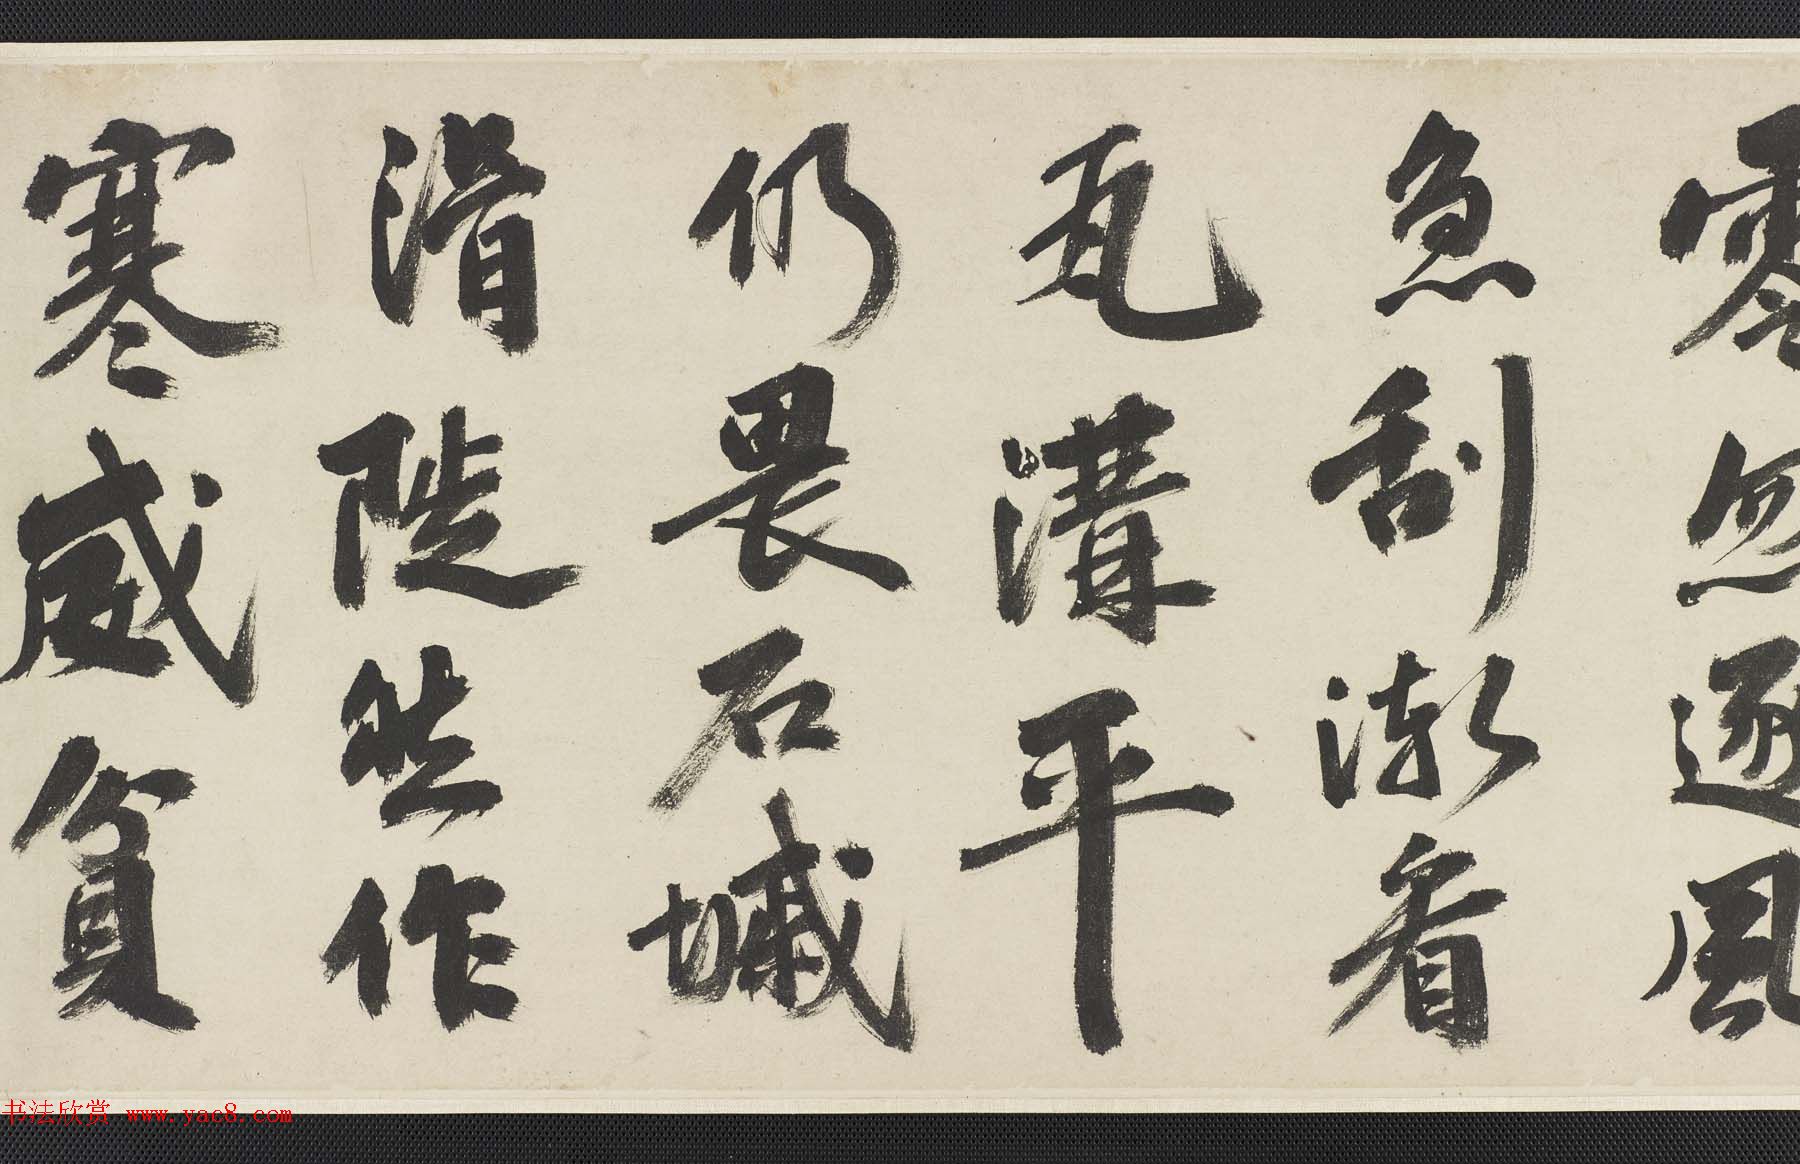 零忽逐風
急刮漸看
瓦溝平
仍畏石㙺
滑陡然作
寒威貧
书法欣赏 www.yac8.com